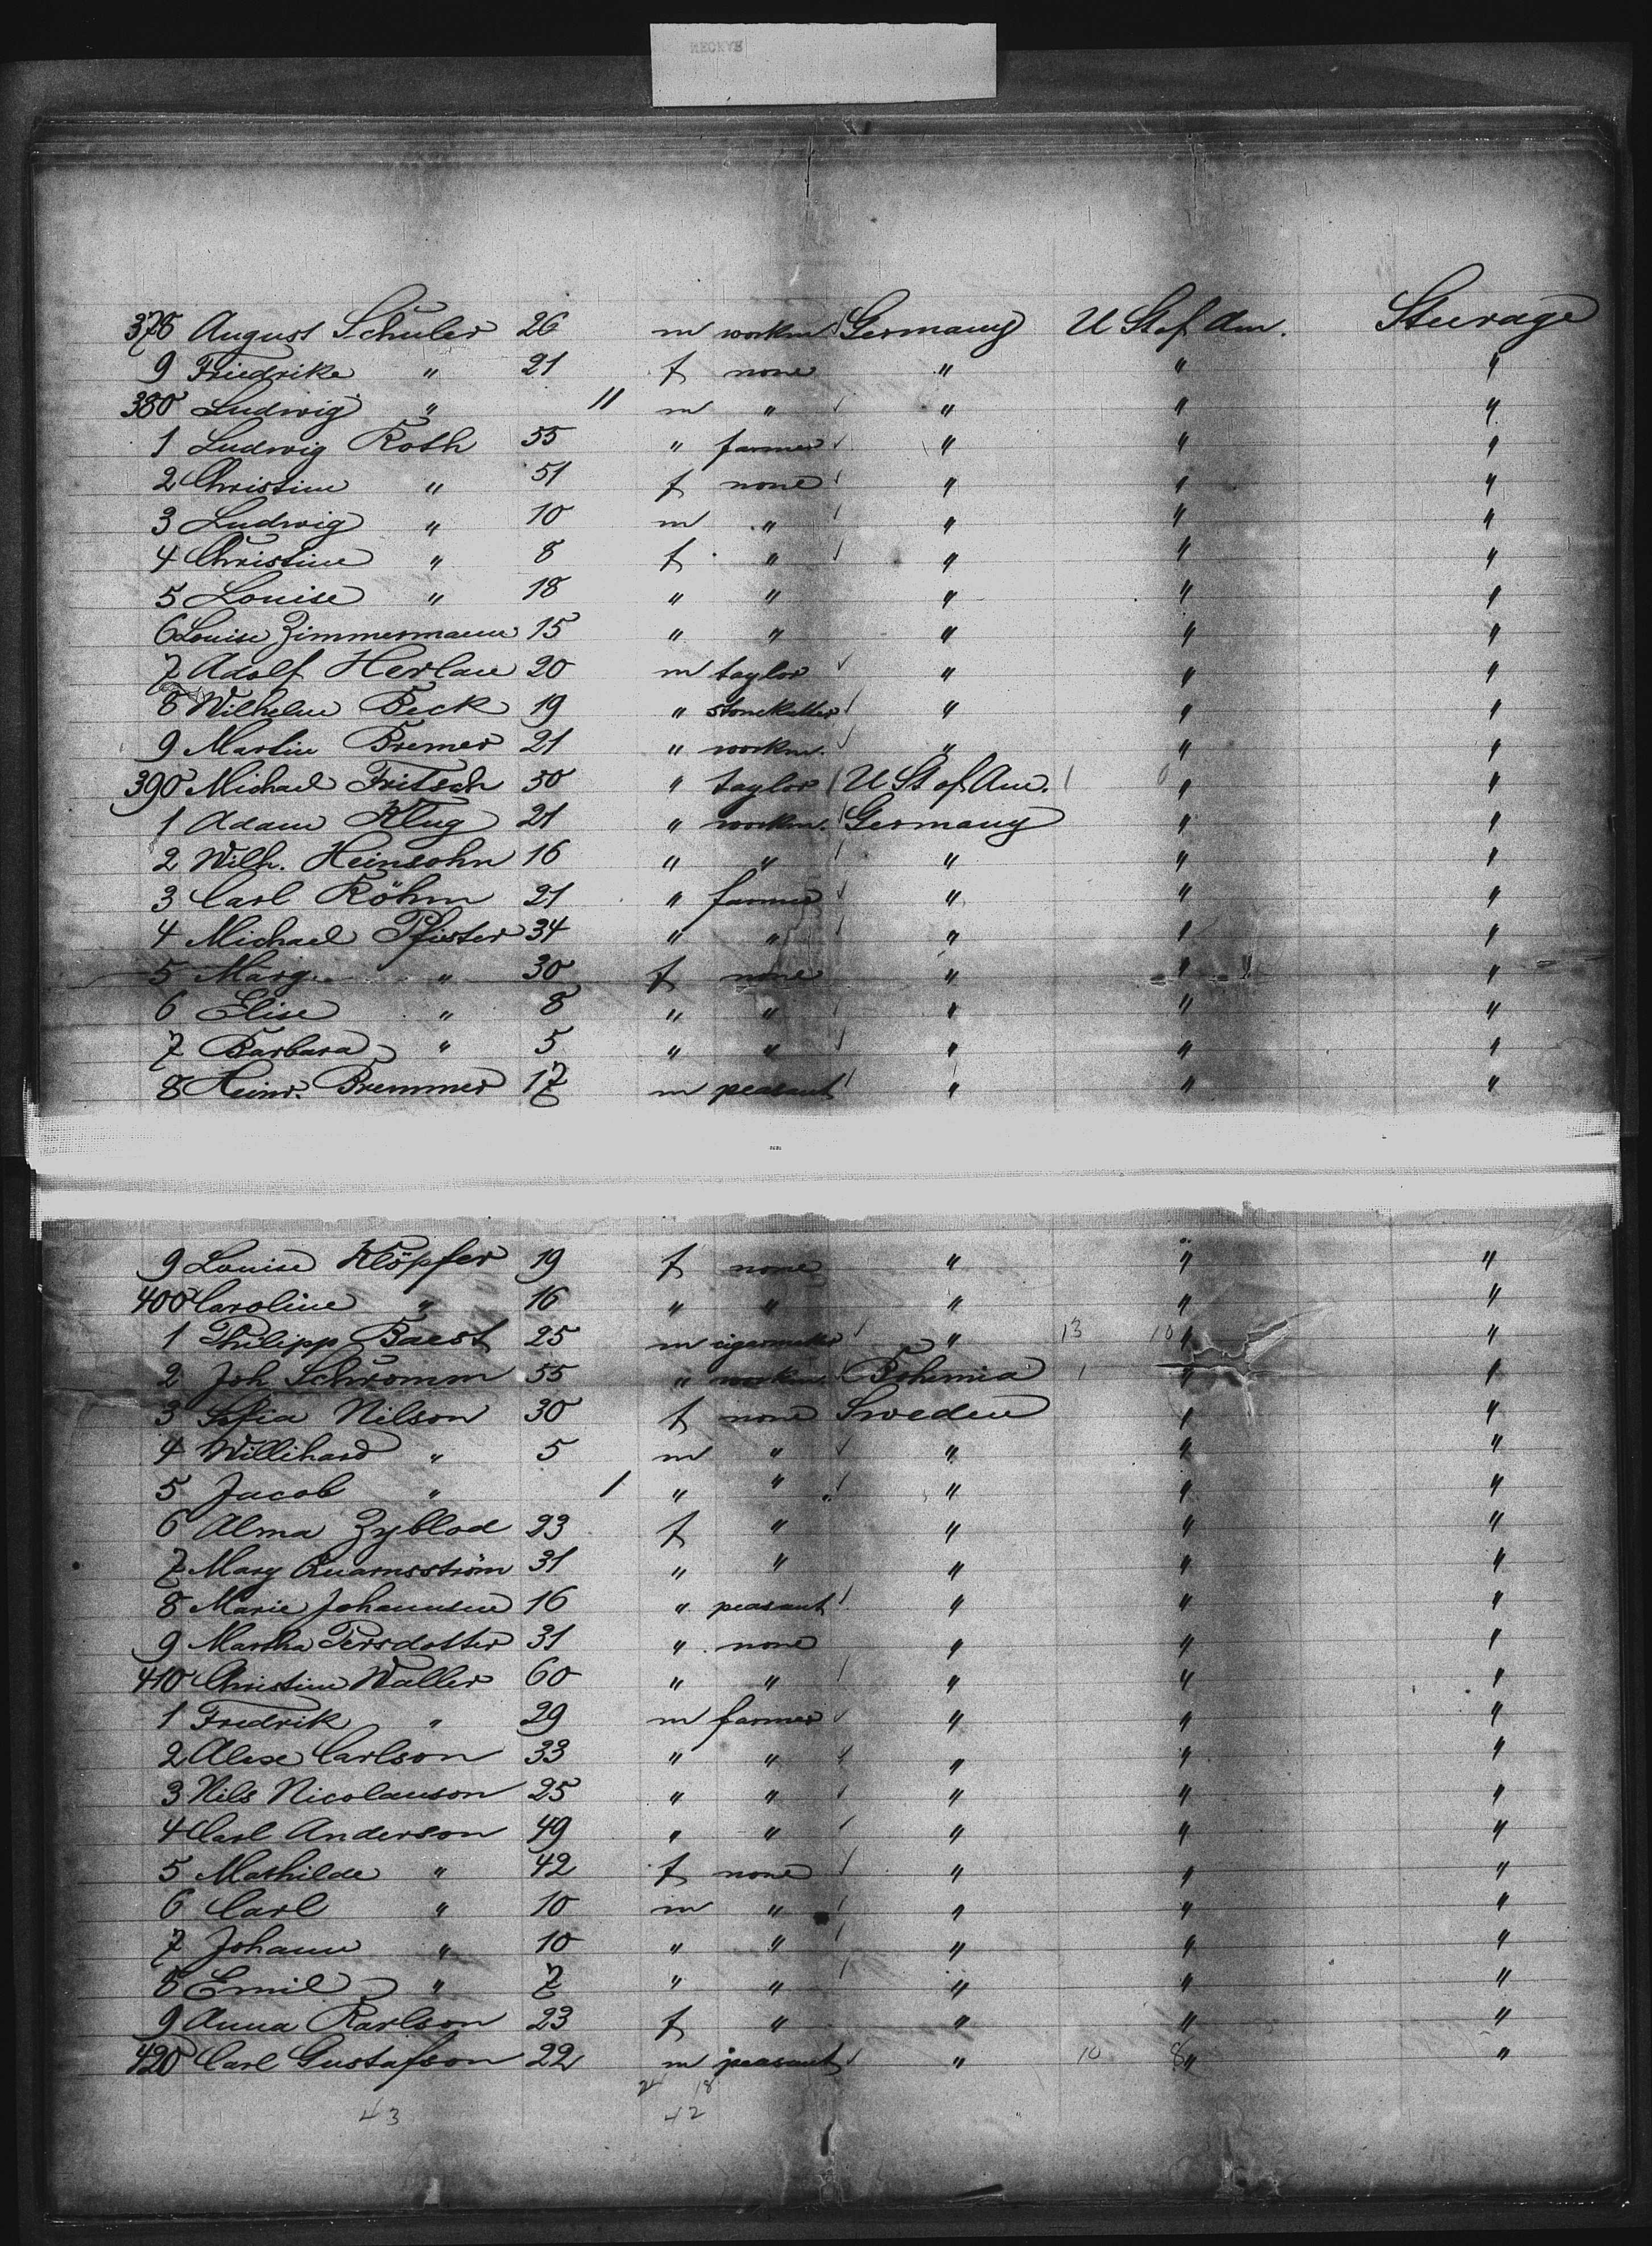 378 August Schuler 26 m workm Germany U St of Am. Steerage
9 Friedrike " 21 f none " " "
380 Ludwig " 11 m " " " "
1 Ludwig Roth 55 " farmer " " "
2 Christine " 51 f none " " "
3 Ludwig " 10 m " " " "
4 Christine " 8 f " " " "
5 Louise " 18 " " " " "
6 Louise Zimmermann 15 " " " " "
7 Adolf Herlan 20 m taylor " " "
8 Wilhelm Beck 19 " stonekutter " " "
9 Martin Bremer 21 " workm. " " "
390 Michael Fritsch 30 " taylor U St of Am. 1 0 " "
1 Adam Klug 21 " workm. Germany " "
2 Wilh. Heinsohn 16 " " " " "
3 Carl Röhm 21 " farmer " " "
4 Michael Pfister 34 " " " " "
5 Marg. " 30 f none " " "
6 Elise " 8 " " " " "
7 Barbara " 5 " " " " "
8 Heinr. Bremmer 17 m peasant " " "
9 Louise Klöpfer 19 f none " " "
400 Caroline " 16 " " " " "
1 Philipp Baest 25 m cigarmaker " 13 10 " "
2 Joh Schromm 55 " workm. Bohemia 1 " "
3 Sofia Nilson 30 f none Sweden " "
4 Willihard " 5 m " " " "
5 Jacob " 1 " " " " "
6 Alma Zyblad 23 f " " " "
7 Mary Quarnsström 31 " " " " "
8 Marie Johannsen 16 " peasant " " "
9 Martha Persdotter 31 " none " " "
410 Christine Waller 60 " " " " "
1 Fredrik " 29 m farmer " " "
2 Alex Carlson 33 " " " " "
3 Nils Nicolauson 25 " " " " "
4 Carl Anderson 49 " " " " "
5 Mathilde " 42 f none " " "
6 Carl " 10 m " " " "
7 Johann " 10 " " " " "
8 Emil " 7 " " " " "
9 Anna Karlson 23 f " " " "
420 Carl Gustafson 22 m peasant " 10 8 " "
24 18
43 42